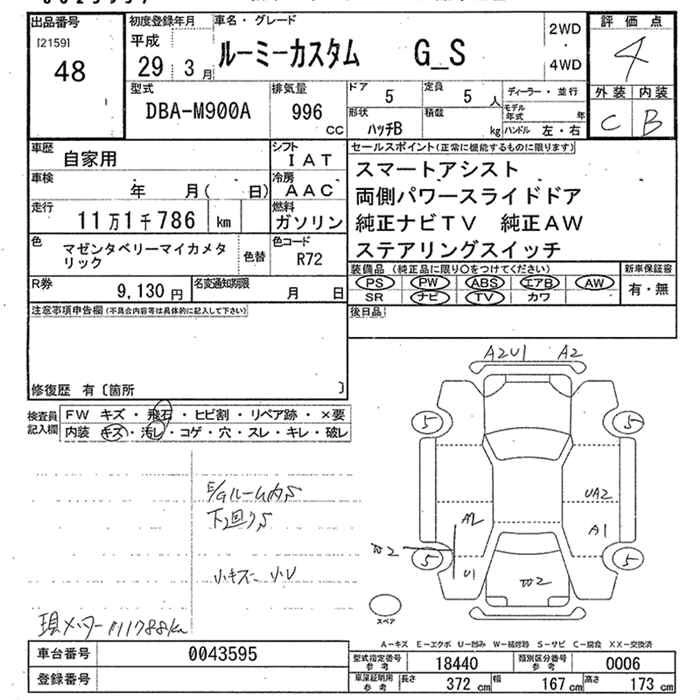 出品番号
[2159]
48
初度登録年月
平成
29 3月
車名・グレード
ルーミーカスタム G_S
2WD
4WD
評価点
4
外装 内装
C B
型式
DBA-M900A
排気量
996
CC
ドア
5
定員
5 人
形状
ハッチB
積載
kg
ディーラー・並行
モデル年式 年
ハンドル 左・右
車歴
自家用
シフト
IAT
車検
年 月( 日)
冷房
AAC
走行
11万1千786 km
燃料
ガソリン
色
マゼンタベリーマイカメタリック
色替
色コード
R72
R券
9,130円
名変通知期限
月 日
セールスポイント(正常に機能するものに限ります)
スマートアシスト
両側パワースライドドア
純正ナビTV 純正AW
ステアリングスイッチ
装備品(純正品に限り○をつけてください)
新車保証書
PS PW ABS エアB AW
SR ナビ TV カワ
有・無
注意事項申告欄(不具合内容等は具体的に記入して下さい)
後日品
修復歴 有〔箇所 〕
検査員記入欄
FW キズ・飛石・ヒビ割・リペア跡・×要
内装 キズ・汚レ・コゲ・穴・スレ・キレ・破レ
A2U1 A2
5 5
E/Gルーム内S
下回りS
小キズ 小U
UA2
A2
A1
U1
W2
W2
5 5
スペア
現メーター111788km
A-キズ E-エクボ U-凹み W-補修跡 S-サビ C-腐食 XX-交換済
車台番号
0043595
登録番号
型式指定番号 参考
18440
類別区分番号 参考
0006
車庫証明用 参考
長さ 372cm 幅 167cm 高さ 173cm